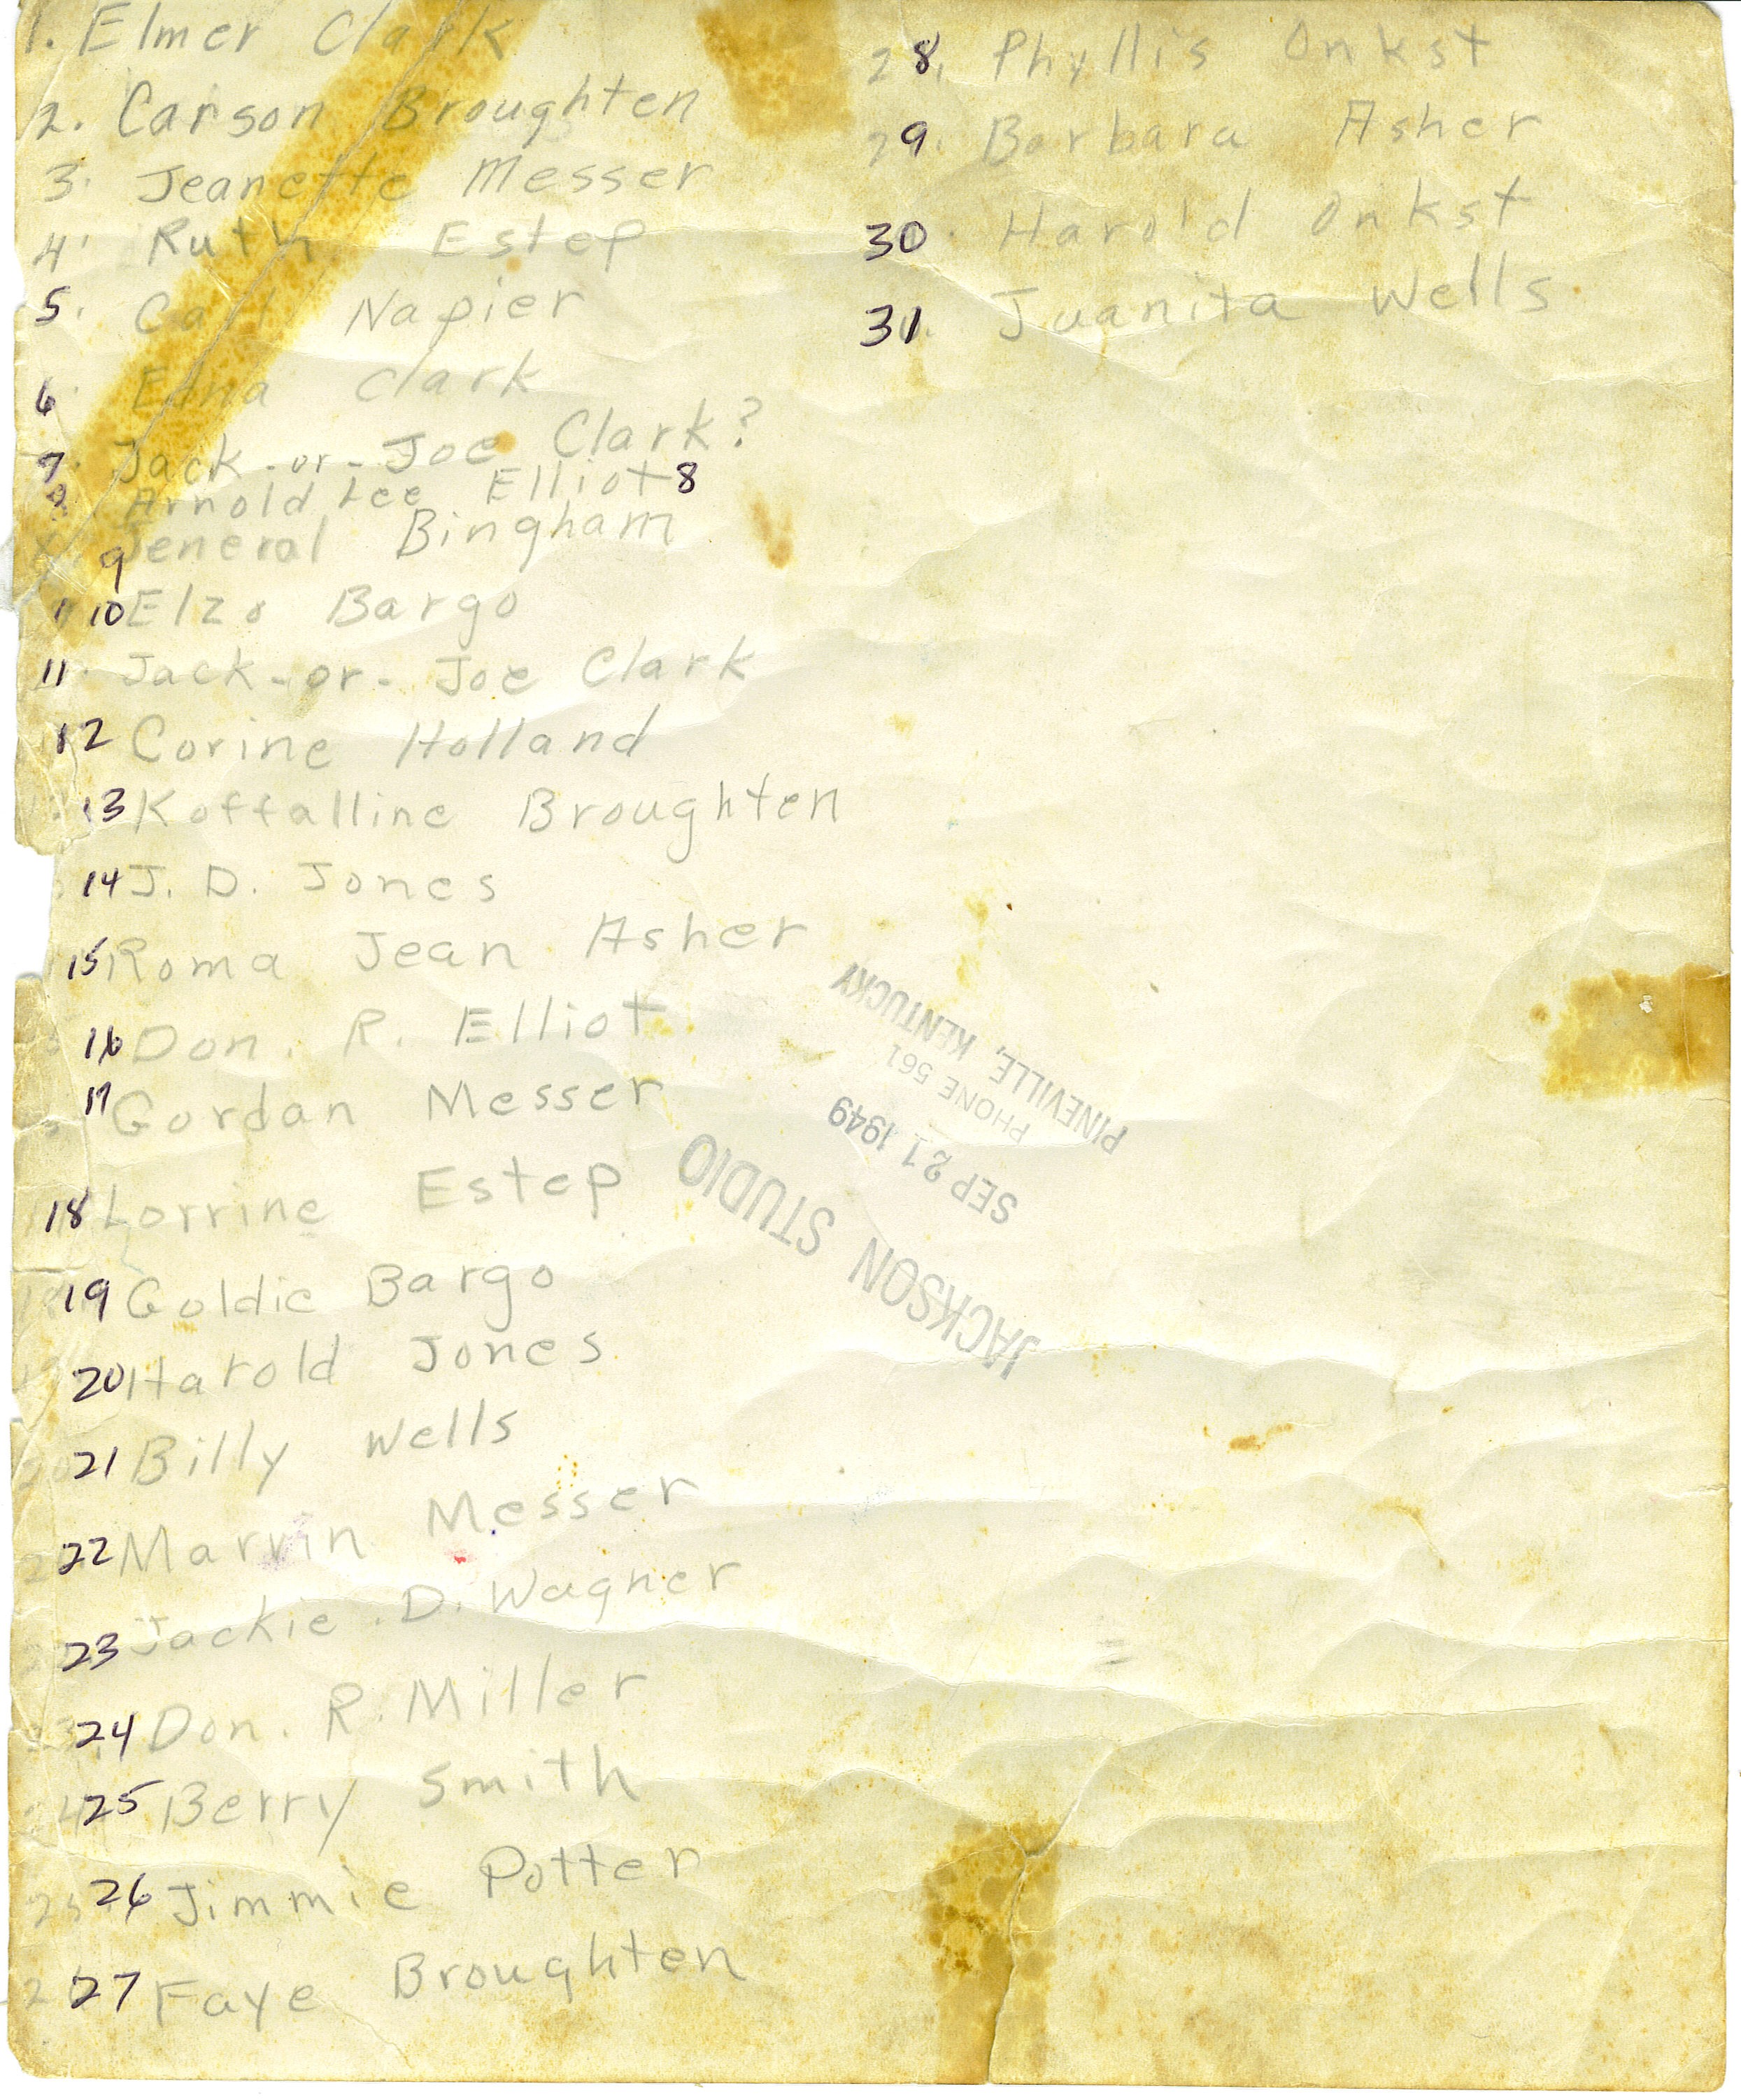 1. Elmer Clark
2. Carson Broughten
3. Jeanette Messer
4. Ruth Estep
5. Carl Napier
6. Edna Clark
7. Jack-or-Joe Clark?
Arnold Lee Elliot 8
9 Jeneral Bingham
10 Elzo Bargo
11. Jack-or-Joe Clark
12 Corine Holland
13 Koffalline Broughten
14 J. D. Jones
15 Roma Jean Asher
16 Don. R. Elliot
17 Gordan Messer
18 Lorrine Estep
19 Goldie Bargo
20 Harold Jones
21 Billy Wells
22 Marvin Messer
23 Jackie. D. Wagner
24 Don. R. Miller
25 Berry Smith
26 Jimmie Potter
27 Faye Broughten
28. Phyllis Onkst
29. Barbara Asher
30. Harold Onkst
31. Juanita Wells
JACKSON STUDIO
SEP 21 1949
PHONE 561
PINEVILLE, KENTUCKY